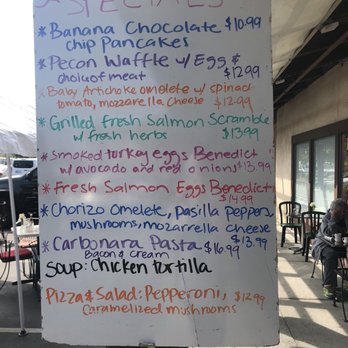 SPECIALS
* Banana Chocolate $10.99
chip Pancakes
* Pecon Waffle w/ Egg &
choice of meat $12.99
* Baby Artichoke omelete w/ spinach
tomato, mozzarella cheese $12.99
* Grilled fresh Salmon Scramble
w/ fresh herbs $13.99
* Smoked turkey eggs Benedict
w/ avocado and red onions $13.99
* Fresh Salmon Eggs Benedict
$14.99
* Chorizo Omelete, Pasilla peppers,
mushrooms, mozarrella cheese
$13.99
* Carbonara Pasta $16.99
Bacon & cream
Soup: Chicken tortilla
Pizza & Salad: Pepperoni, $12.99
Caramelized mushrooms